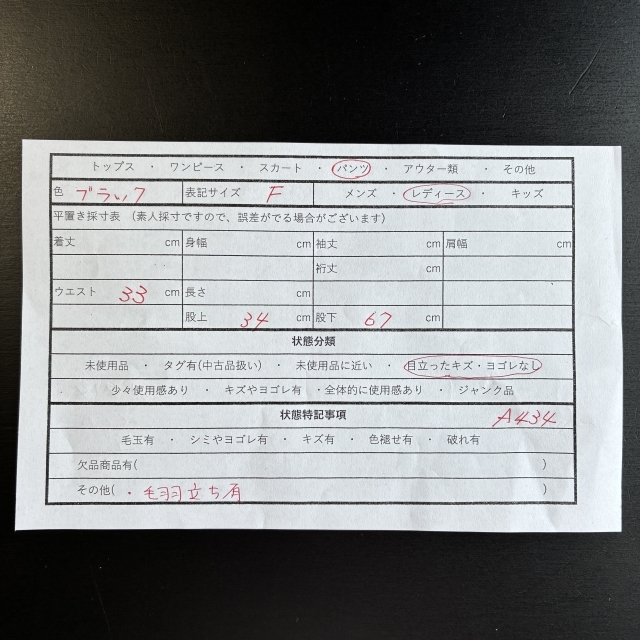 トップス ・ ワンピース ・ スカート ・ パンツ ・ アウター類 ・ その他
色 ブラック 表記サイズ F メンズ ・ レディース ・ キッズ
平置き採寸表 (素人採寸ですので、誤差がでる場合がございます)
着丈 cm 身幅 cm 袖丈 cm 肩幅 cm
裄丈 cm
ウエスト 33 cm 長さ cm
股上 34 cm 股下 67 cm
状態分類
未使用品 ・ タグ有(中古品扱い) ・ 未使用品に近い ・ 目立ったキズ・ヨゴレなし
少々使用感あり ・ キズやヨゴレ有 ・全体的に使用感あり ・ ジャンク品
状態特記事項 A434
毛玉有 ・ シミやヨゴレ有 ・ キズ有 ・ 色褪せ有 ・ 破れ有
欠品商品有( )
その他( ・毛羽立ち有 )